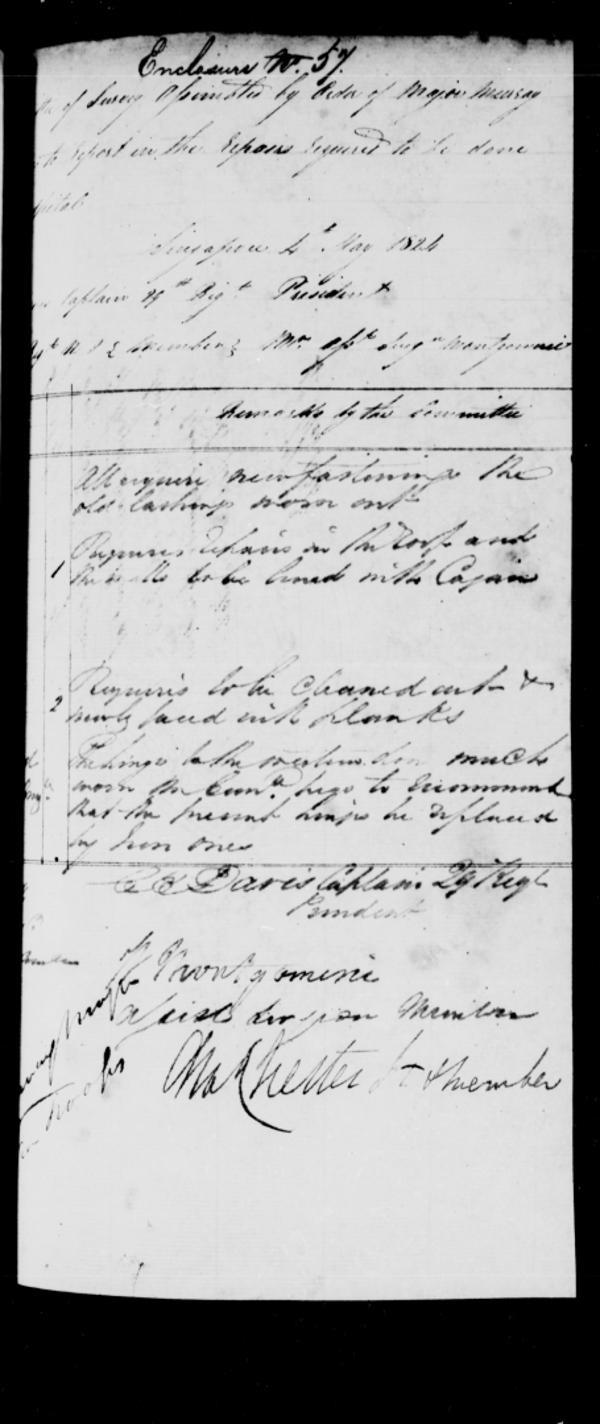 Enclosure No. 57.
of Survey Assembled by Order of Major Murray
to Report in the Repairs required to be done
Singapore 4th May 1824
Captain 29th Regt. President
N I & Members Mr. Asst. Surgn Montgomerie
Remarks by the Committee
All require new fastenings the
old lashings worn out
1 Requires Repairs in the Roof and
the walls to be lined with Cajan
2 Requires to be cleaned out &
newly faced with planks
The hinges to the much
worn the Comee. begs to recommend
that the present hinges be replaced
by Iron ones
C E Davis Captain 29 Regt
President
Montgomerie
Assist Surgeon Member
Chas Chester Lt & Member